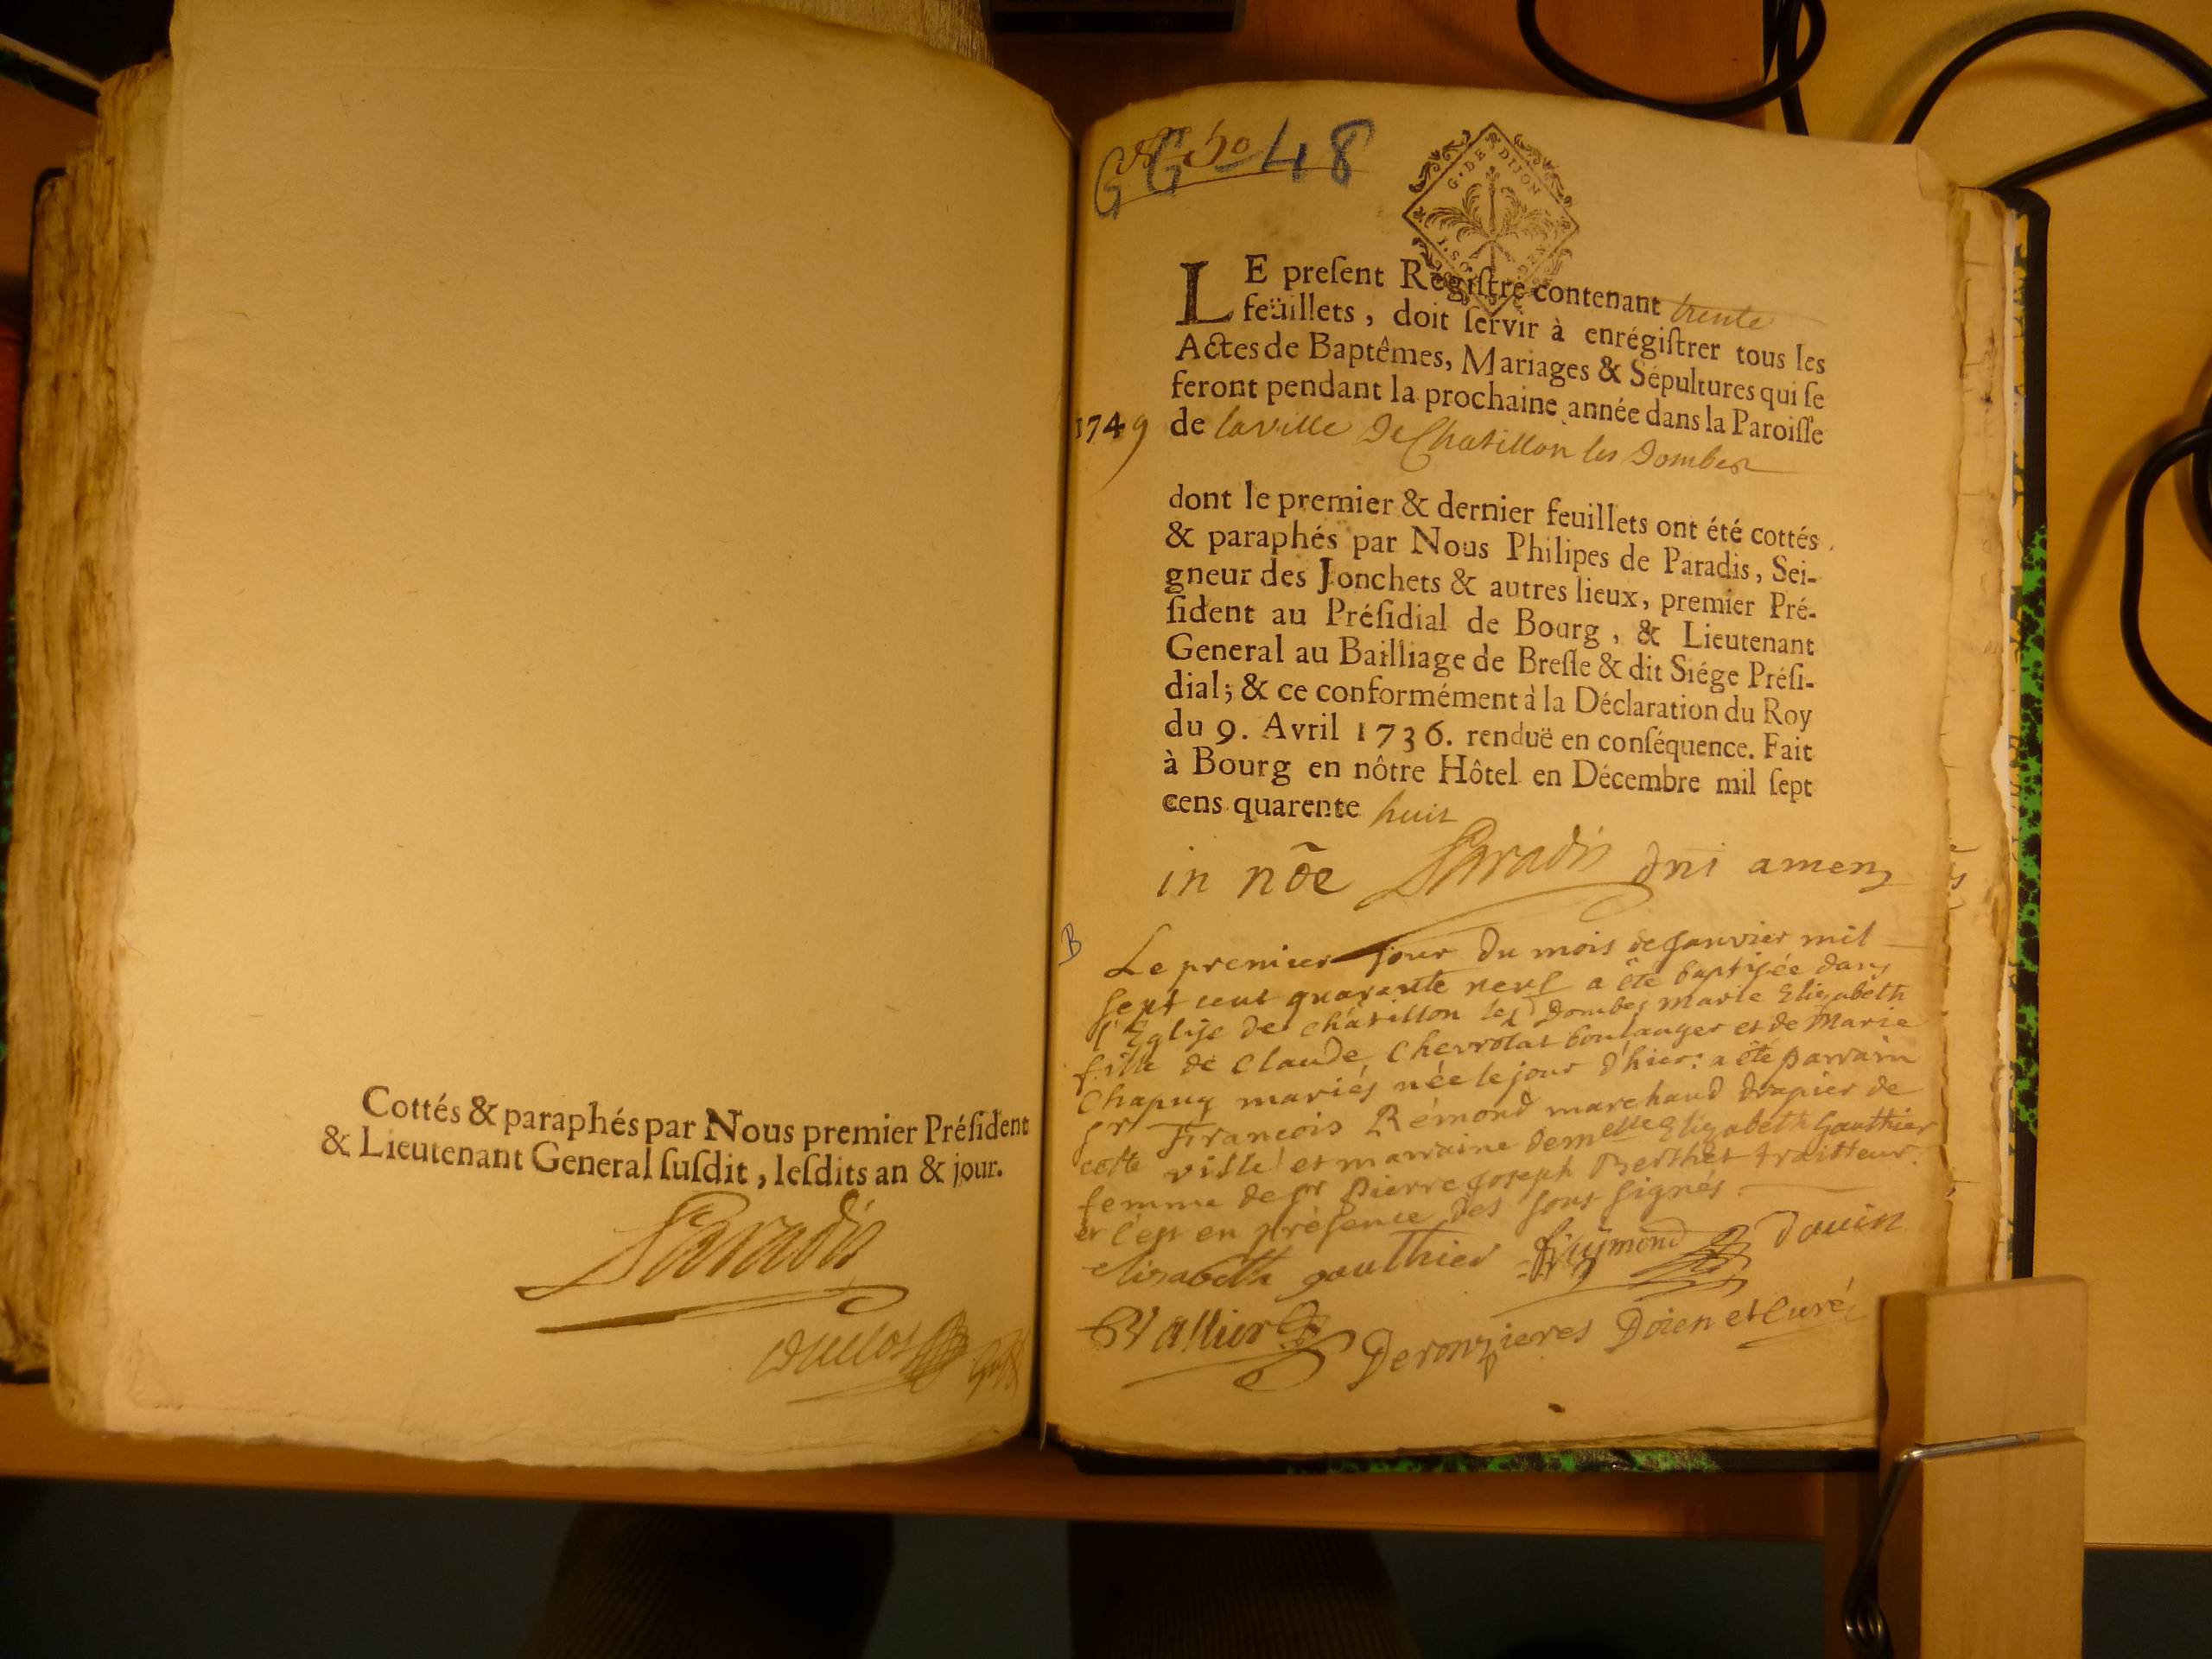 Cottés & paraphés par Nous premier Préſident
& Lieutenant General ſuſdit, leſdits an & jour.
Paradis
GG 48
No 50
G. DE DIJON
LE preſent Régiſtre contenant trente
feüillets, doit ſervir à enrégiſtrer tous les
Actes de Baptêmes, Mariages & Sépultures qui ſe
feront pendant la prochaine année dans la Paroiſſe
1749 de la ville De Chatillon les Dombes
dont le premier & dernier feuillets ont été cottés
& paraphés par Nous Philipes de Paradis, Sei-
gneur des Jonchets & autres lieux, premier Pré-
ſident au Préſidial de Bourg, & Lieutenant
General au Bailliage de Breſſe & dit Siége Préſi-
dial; & ce conformément à la Déclaration du Roy
du 9. Avril 1736. renduë en conſéquence. Fait
à Bourg en nôtre Hôtel en Décembre mil ſept
cens quarente huit
in nõe Paradis dni amen
B
Le premier jour du mois de Janvier mil
sept cent quarante neuf a été baptisée dans
l'Eglise de châtillon les Dombes marie Elizabeth
fille de Claude Chevrolat boulanger et de Marie
Chapuy mariés née le jour d'hier: a été parrain
sr François Rémond marchand drapier de
cette ville et marraine demelle Elizabeth Gauthier
femme de sr Pierre Joseph Berthet traitteur:
et c'est en présence des sous signés.
elisabeth gauthier Reymond Dauin
Vallier Deronzieres Doien et Curé